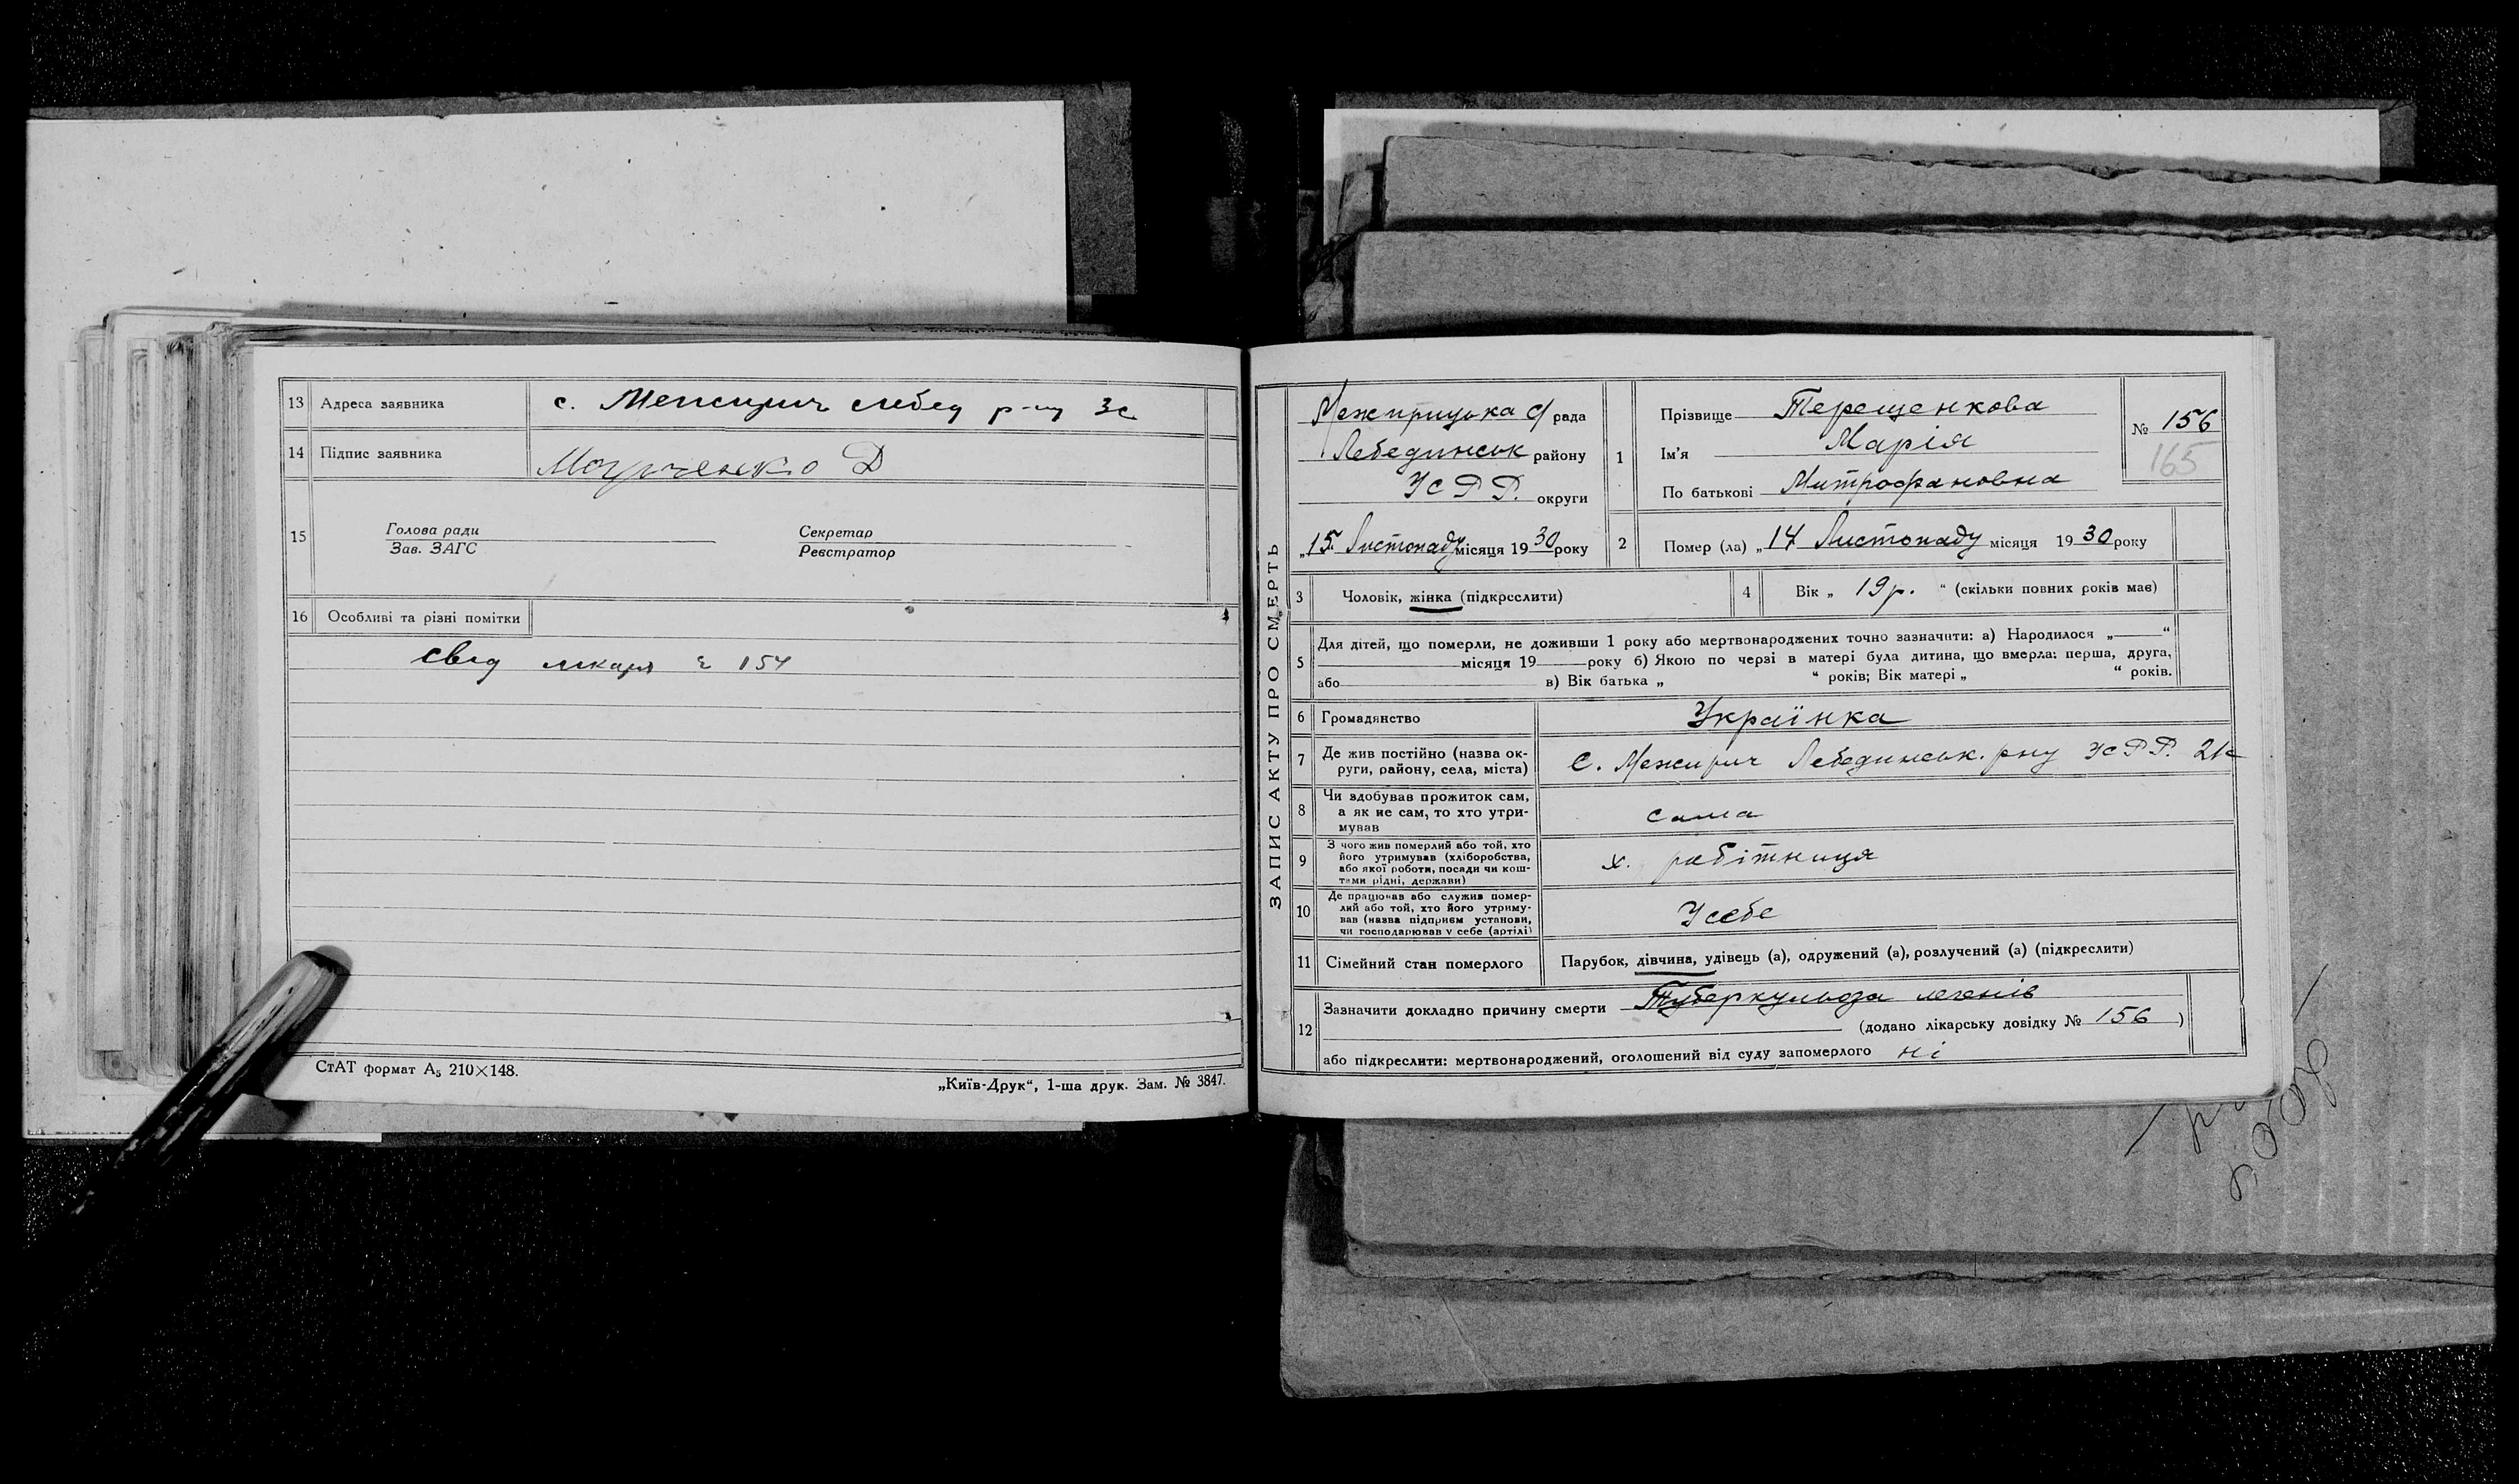 13 Адреса заявника с. Межирич Лебед р-ну 3с
14 Підпис заявника Д
15 Голова ради Секретар
Зав. ЗАГС Реєстратор
16 Особливі та різні помітки
свід лікаря 154
СтАТ формат А₅ 210×148.
„Київ-Друк“, 1-ша друк. Зам. № 3847.
ЗАПИС АКТУ ПРО СМЕРТЬ
Межирицька с/рада
Лебединськ району
УСРР. округи
„15. Листопаду місяця 1930 року
1 Прізвище Терещенкова
Ім'я Марія
По батькові Митрофановна
№ 156
165
2 Помер (ла) „14 Листопаду місяця 1930 року
3 Чоловік, жінка (підкреслити)
4 Вік „ 19 р. “ (скільки повних років має)
5 Для дітей, що померли, не доживши 1 року або мертвонароджених точно зазначити: а) Народилося „ “
місяця 19 року б) Якою по черзі в матері була дитина, що вмерла: перша, друга,
або в) Вік батька „ “ років; Вік матері „ “ років.
6 Громадянство Українка
7 Де жив постійно (назва округи, району, села, міста) С. Межирич Лебединськ. рну УСРР.
8 Чи здобував прожиток сам,
а як не сам, то хто утри-
мував сама
9 З чого жив померлий або той, хто
його утримував (хліборобства,
або якої роботи, посади чи кош-
тами рідні, держави) х. робітниця
10 Де працював або служив помер-
лий або той, хто його утриму-
вав (назва підприєм установи,
чи господарював у себе (артілі) У себе
11 Сімейний стан померлого Парубок, дівчина, удівець (а), одружений (а), розлучений (а) (підкреслити)
12 Зазначити докладно причину смерти Туберкульоза легенів
(додано лікарську довідку № 156 )
або підкреслити: мертвонароджений, оголошений від суду запомерлого ні